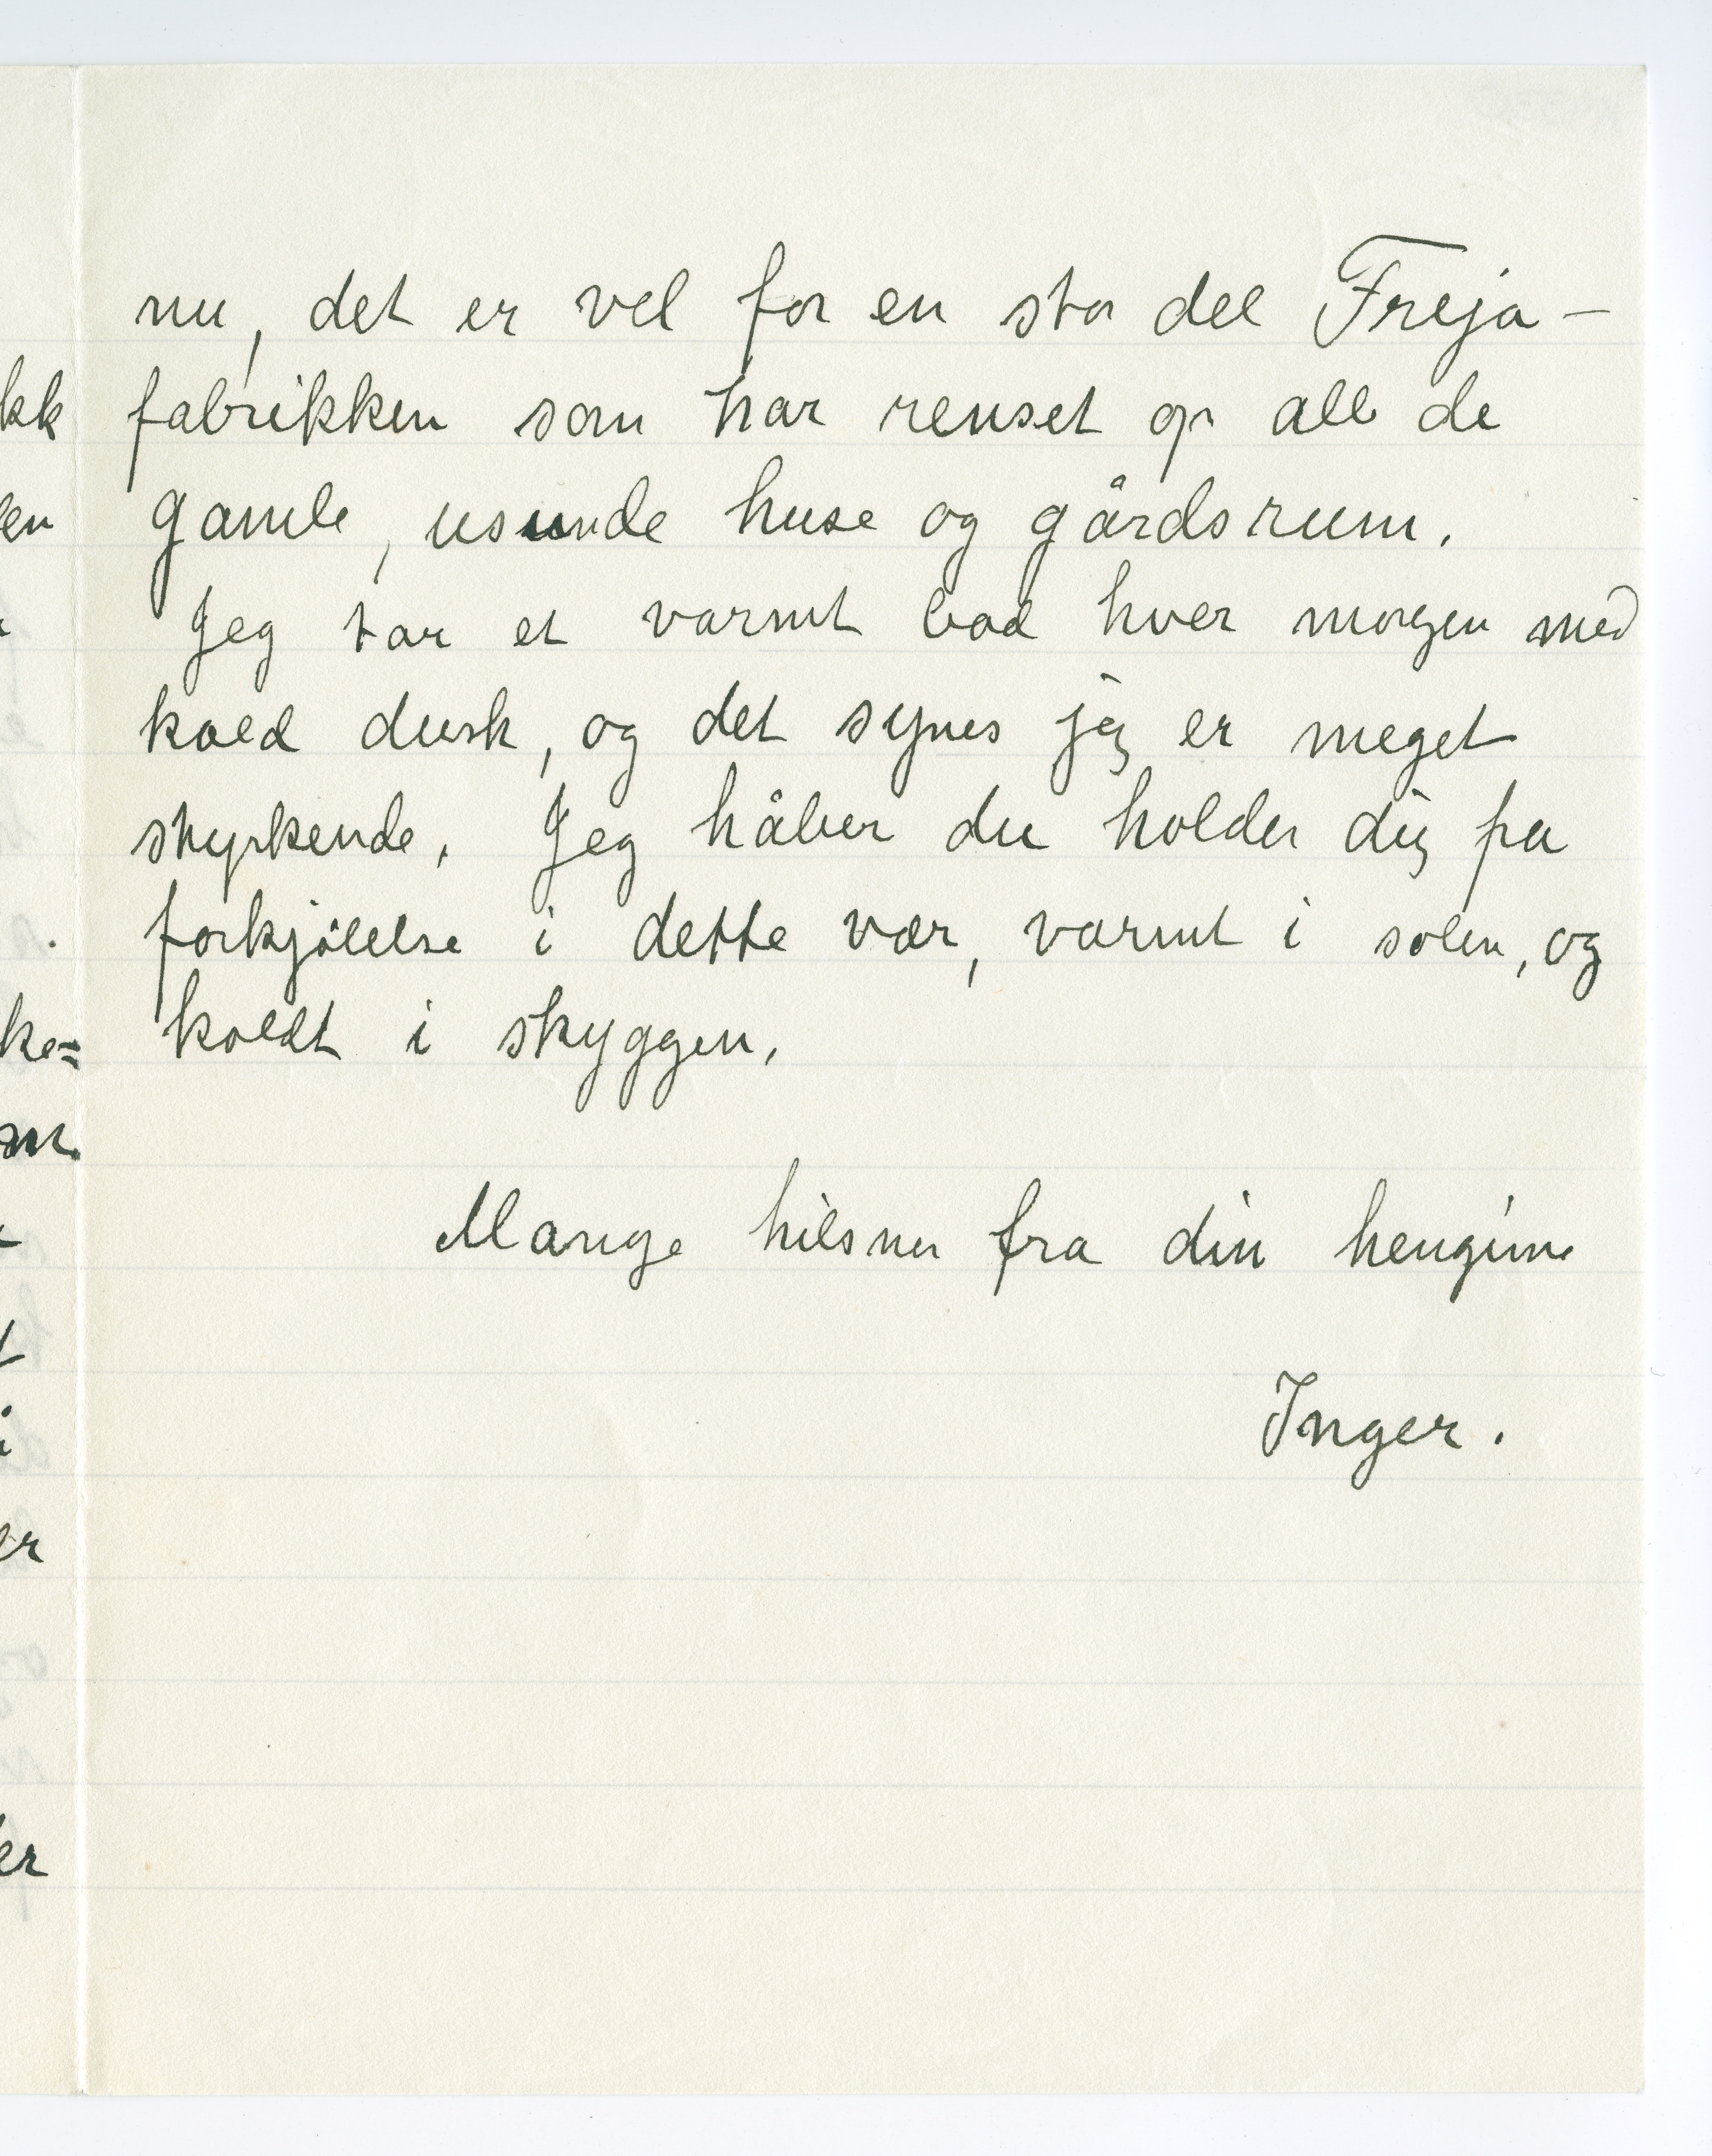 nu, det er vel for en stor del Freja-
fabrikken som har renset op all de
gamle, usunde huse og gårdsrum.
Jeg tar et varmt bad hver morgen med
kold dusk, og det synes jeg er meget
styrkende. Jeg håber du holder dig fra
forkjølelse i dette vær, varmt i solen, og
koldt i skyggen.
Mange hilsner fra din hengivne
Inger.
kk
en
ke=
m.
t
i
er
er